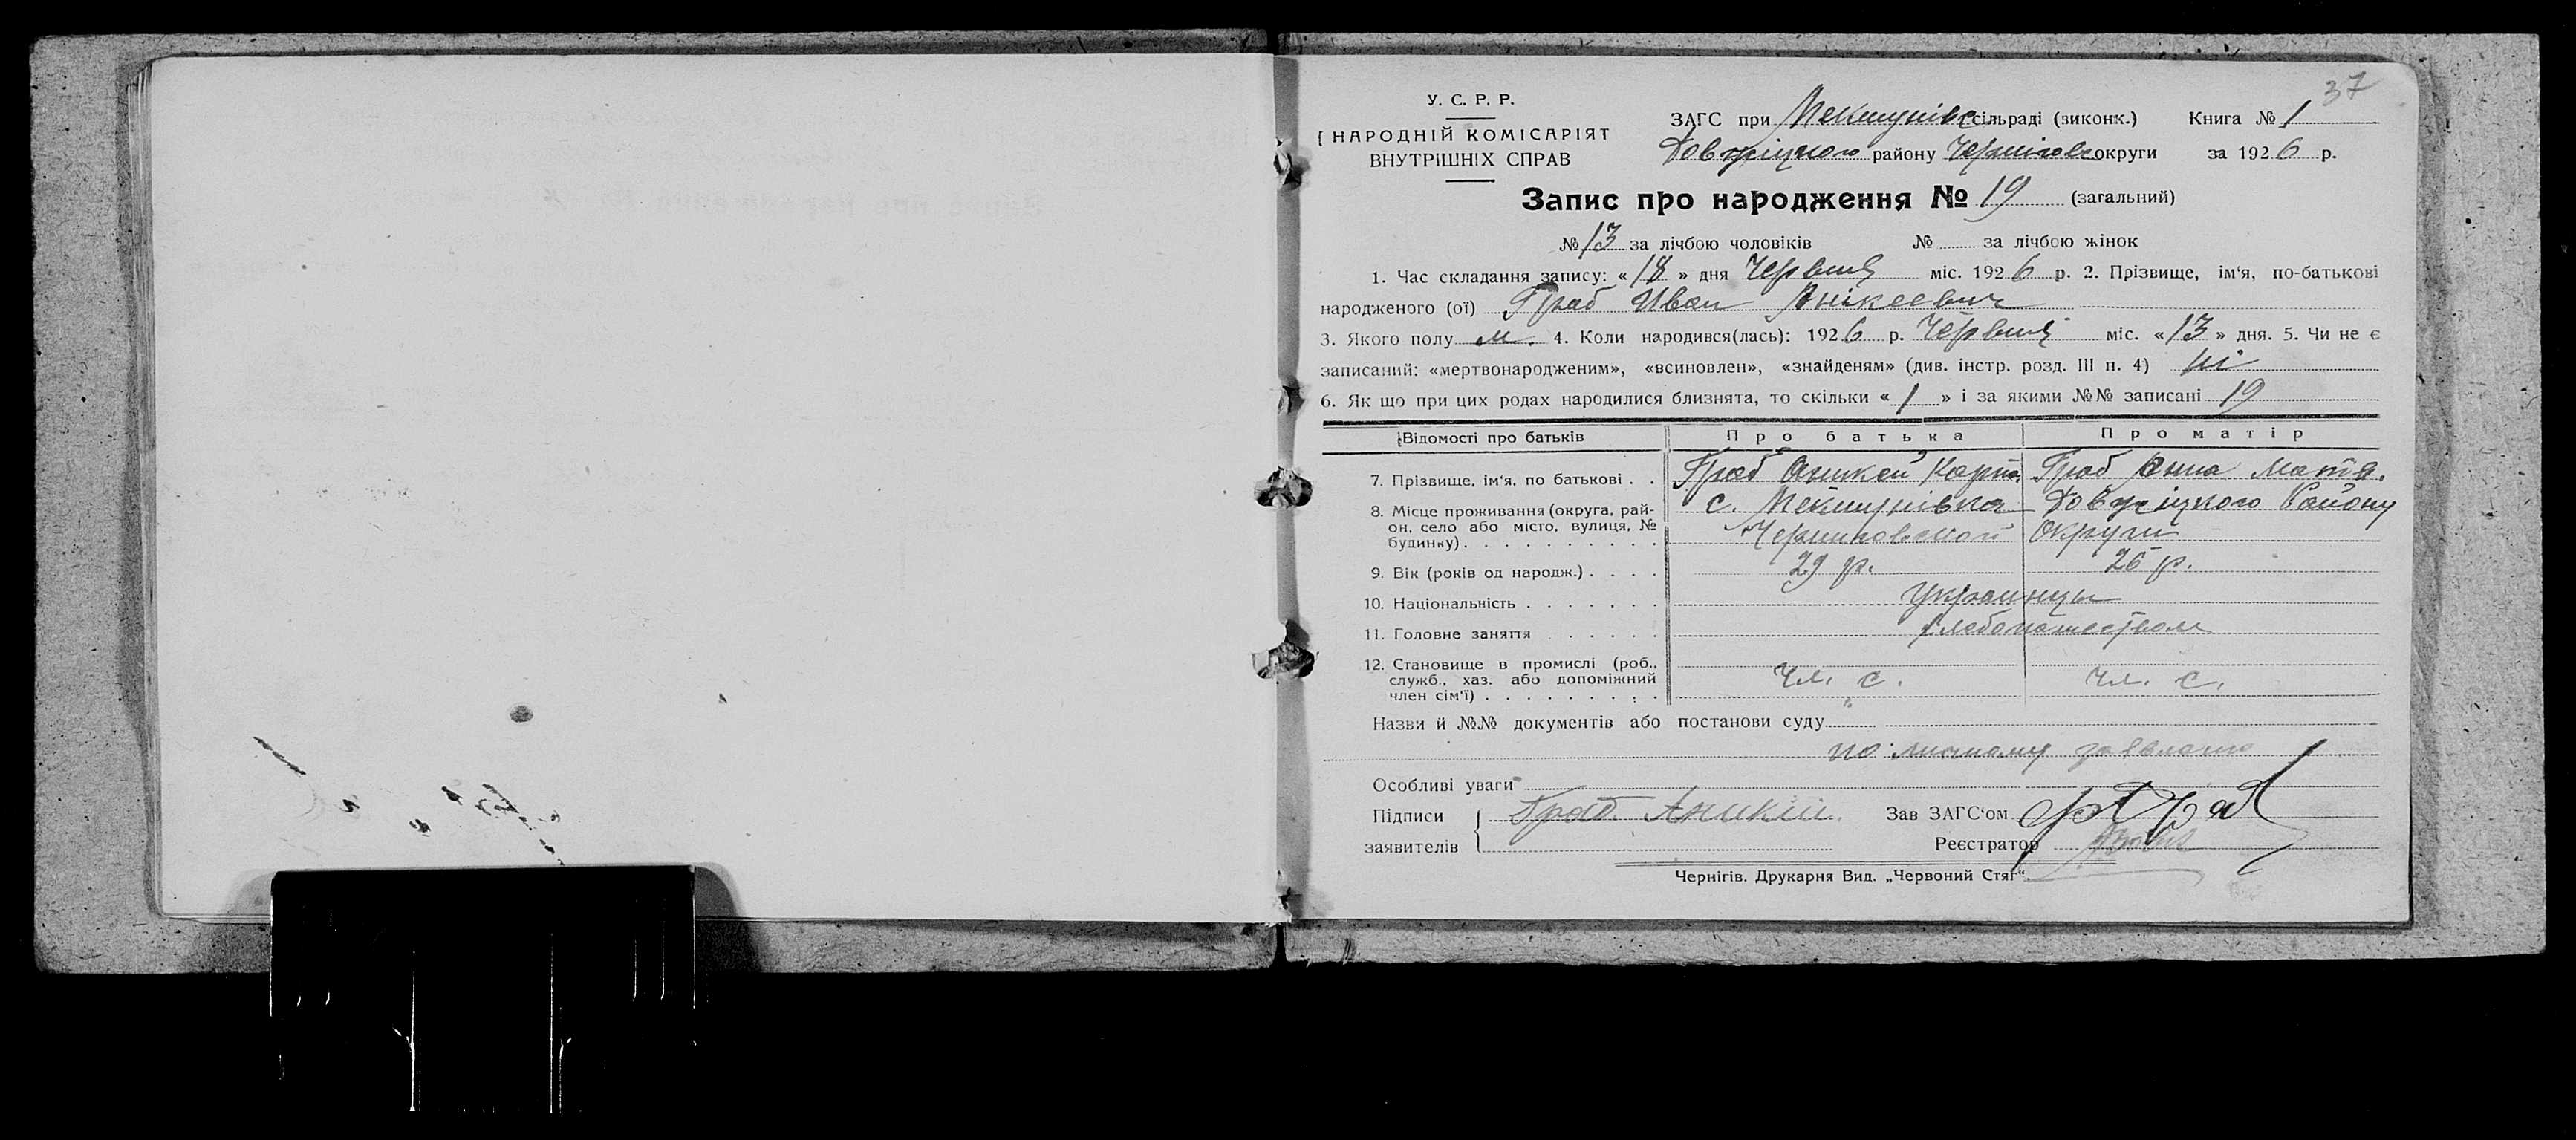 37
У. С. Р. Р.
НАРОДНІЙ КОМІСАРІЯТ
ВНУТРІШНІХ СПРАВ
ЗАГС при Мекшунівс сільраді (виконк.) Книга № 1
Довжіцкого району Черніговс округи за 1926 р.
Запис про народження № 19 (загальний)
№ 13 за лічбою чоловіків № за лічбою жінок
1. Час складання запису: « 18 » дня Червня міс. 1926 р. 2. Прізвище, ім‘я, по-батькові
народженого (ої) Граб Иван Аникеевич
3. Якого полу м. 4. Коли народився(лась): 1926 р. Червня міс. « 13 » дня. 5. Чи не є
записаний: «мертвонародженим», «всиновлен», «знайденям» (див. інстр. розд. III п. 4) ні
6. Як що при цих родах народилися близнята, то скільки « 1 » і за якими №№ записані 19
Відомості про батьків Про батька Про матір
7. Прізвище, ім‘я, по батькові . . Граб Аникей Карпо. Граб Анна Матв.
8. Місце проживання (округа, рай- с. Мекшунівка Довжіцкого Району
он, село або місто, вулиця, № Черниговской Округи
будинку) . . . . . . . . . .
9. Вік (років од народж.) . . . . 29 р. 26 р.
10. Національність . . . . . . . Украинцы
11. Головне заняття . . . . . . Хлебопашеством
12. Становище в промислі (роб.,
служб., хаз. або допоміжний Чл. с. Чл. с.
член сім‘ї) . . . . . . . . . .
Назви й №№ документів або постанови суду
по
Особливі уваги
Підписи Граб. Аникий. Зав ЗАГС‘ом
заявителів Реєстратор
Чернігів. Друкарня Вид. „Червоний Стяг“.